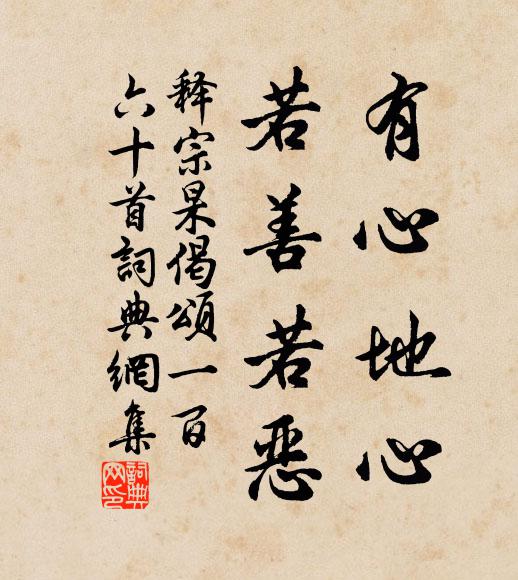 有心地心
若善若恶
释宗杲偈頌一百
六十首詞典網集
詞典网印